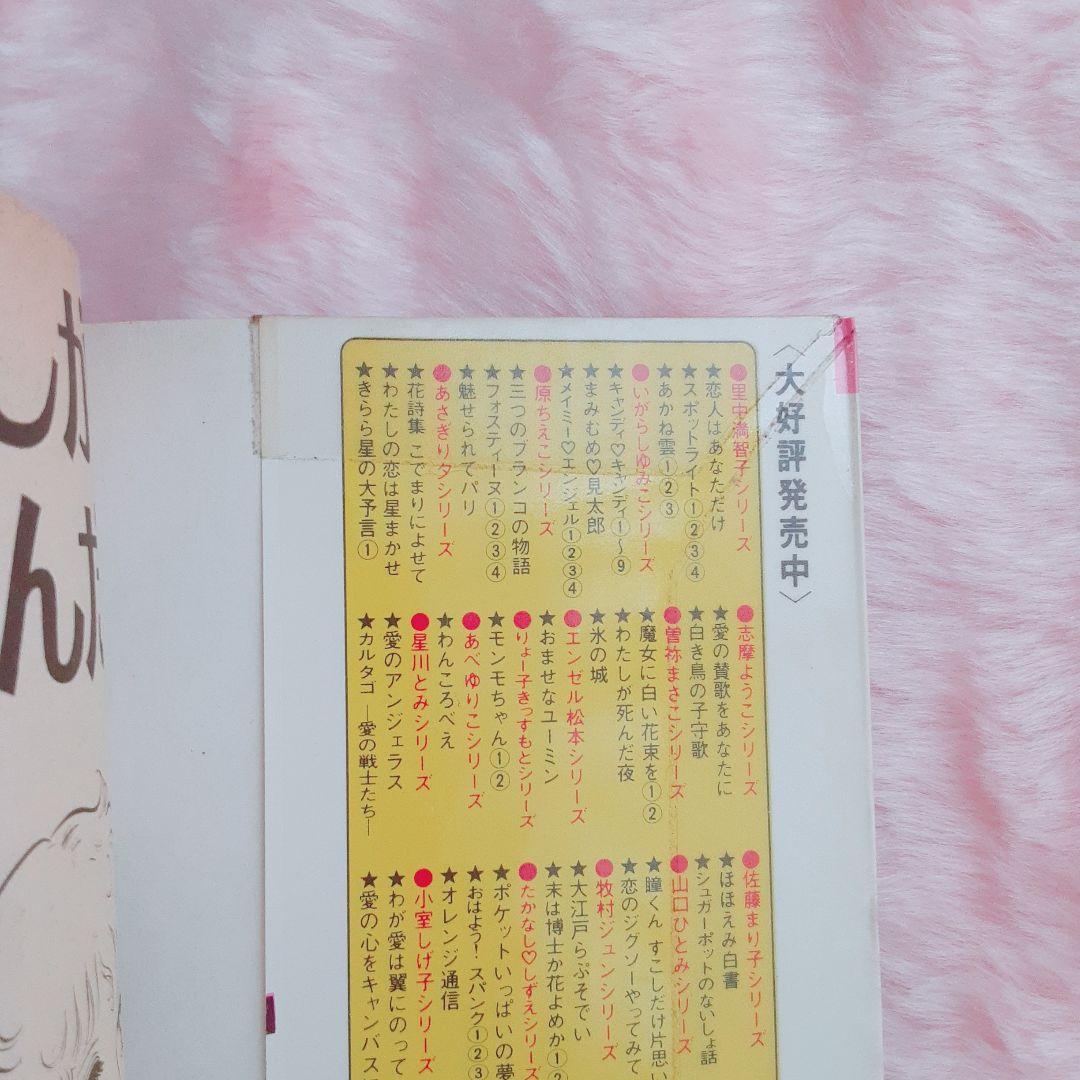 〈大好評発売中〉
●里中満智子シリーズ
★恋人はあなただけ
★スポットライト①②③④
★あかね雲①②③
●いがらしゆみこシリーズ
★キャンディ♡キャンディ①〜⑨
★まみむめ♡見太郎
★メイミー♡エンジェル①②③④
●原ちえこシリーズ
★三つのブランコの物語
★フォスティーヌ①②③④
★魅せられてパリ
●あさぎり夕シリーズ
★花詩集 こでまりによせて
★わたしの恋は星まかせ
★きらら星の大予言①
●志摩ようこシリーズ
★愛の賛歌をあなたに
★白き鳥の子守歌
●曽祢まさこシリーズ
★魔女に白い花束を①②
★わたしが死んだ夜
★氷の城
●エンゼル松本シリーズ
★おませなユーミン
●りょー子きっすもとシリーズ
★モンモちゃん①②
●あべゆりこシリーズ
★わんころべえ
●星川とみシリーズ
★愛のアンジェラス
★カルタゴ ―愛の戦士たち―
●佐藤まり子シリーズ
★ほほえみ白書
★シュガーポットのないしょ話
●山口ひとみシリーズ
★瞳くん すこしだけ片思い
★恋のジグソーやってみて
●牧村ジュンシリーズ
★大江戸らぷそでい
★末は博士か花よめか①②
●たかなし♡しずえシリーズ
★ポケットいっぱいの夢
★おはよう！スパンク①②③
★オレンジ通信
●小室しげ子シリーズ
★わが愛は翼にのって
★愛の心をキャンバス